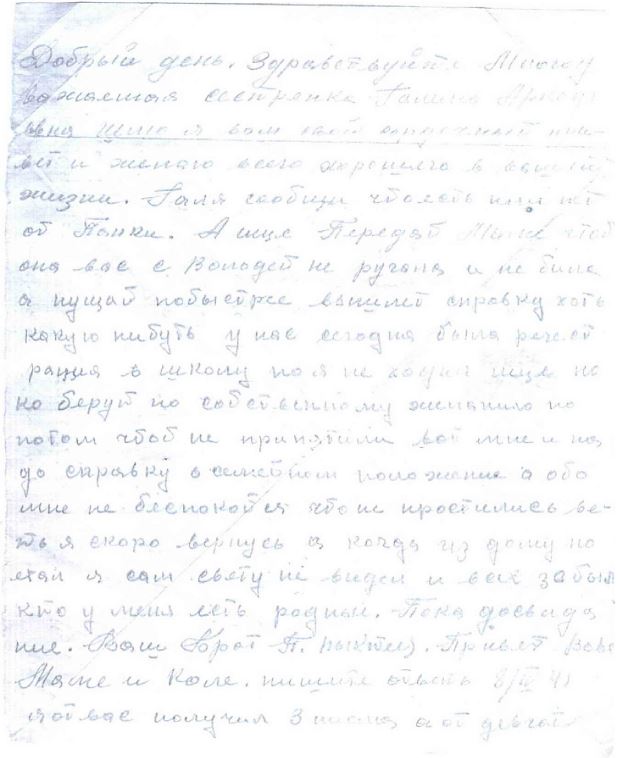 Добрый день. Здравствуйте Многоу
важаемая сестренка Галина Аркад
ьвна шлю я вам свой
вет и желаю всего хорошего в вашей
жизни. Галя сообщи что есть или нет
от Паньки. А ище Передай Маме чтоб
она вас с Володей не ругала и не била
а пущай побыстрее вышлет справку хоть
какую нибуть у нас сегодня была
рация в школу но я не ходил ище но
но берут по собственному желанию но
потом чтоб не вот мне и на
до справку о семейном положение а обо
мне не беспокойся что не простились ве-
ть я скоро вернусь а когда из дому по
ехал я сам свету не видел и всех забыл
кто у меня есть родный. Пока досвида
ние. Ваш брат П. Привет Вове
Маме и Коле. пишите 41
я от вас получил 3 писма а от девчат